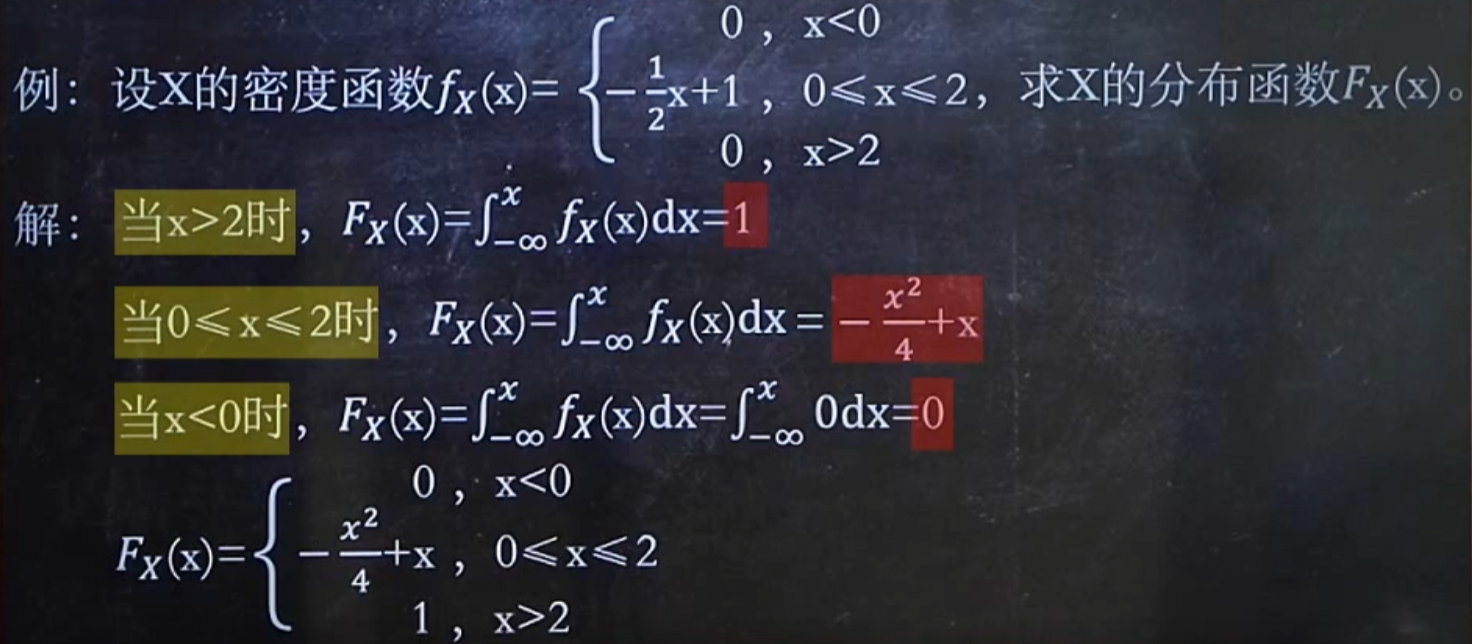 0 , x<0
例：设X的密度函数f_X(x)={ -1/2x+1 , 0⩽x⩽2，求X的分布函数F_X(x)。
0 , x>2
解：当x>2时，F_X(x)=∫_{-∞}^{x} f_X(x)dx=1
当0⩽x⩽2时，F_X(x)=∫_{-∞}^{x} f_X(x)dx=-x²/4+x
当x<0时，F_X(x)=∫_{-∞}^{x} f_X(x)dx=∫_{-∞}^{x} 0dx=0
0 , x<0
F_X(x)={ -x²/4+x , 0⩽x⩽2
1 , x>2